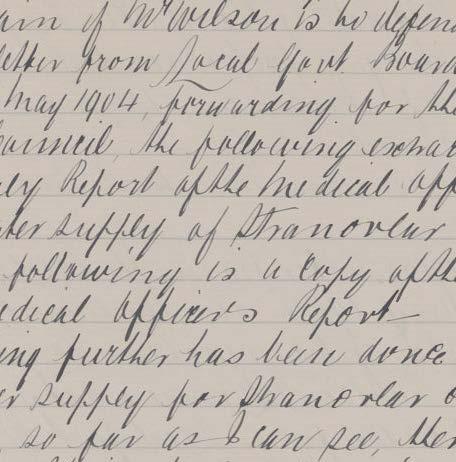 aim of Mr Wilson is to defend
letter from Local Govt. Board
May 1904, forwarding for the
Council, the following extrac
ly Report of the Medical Off
ter supply of Stranorlar
following is a Copy of the
edical Officer's Report—
ing further has been donce
er supply for Stranorlar o
, so far as I can see, ther